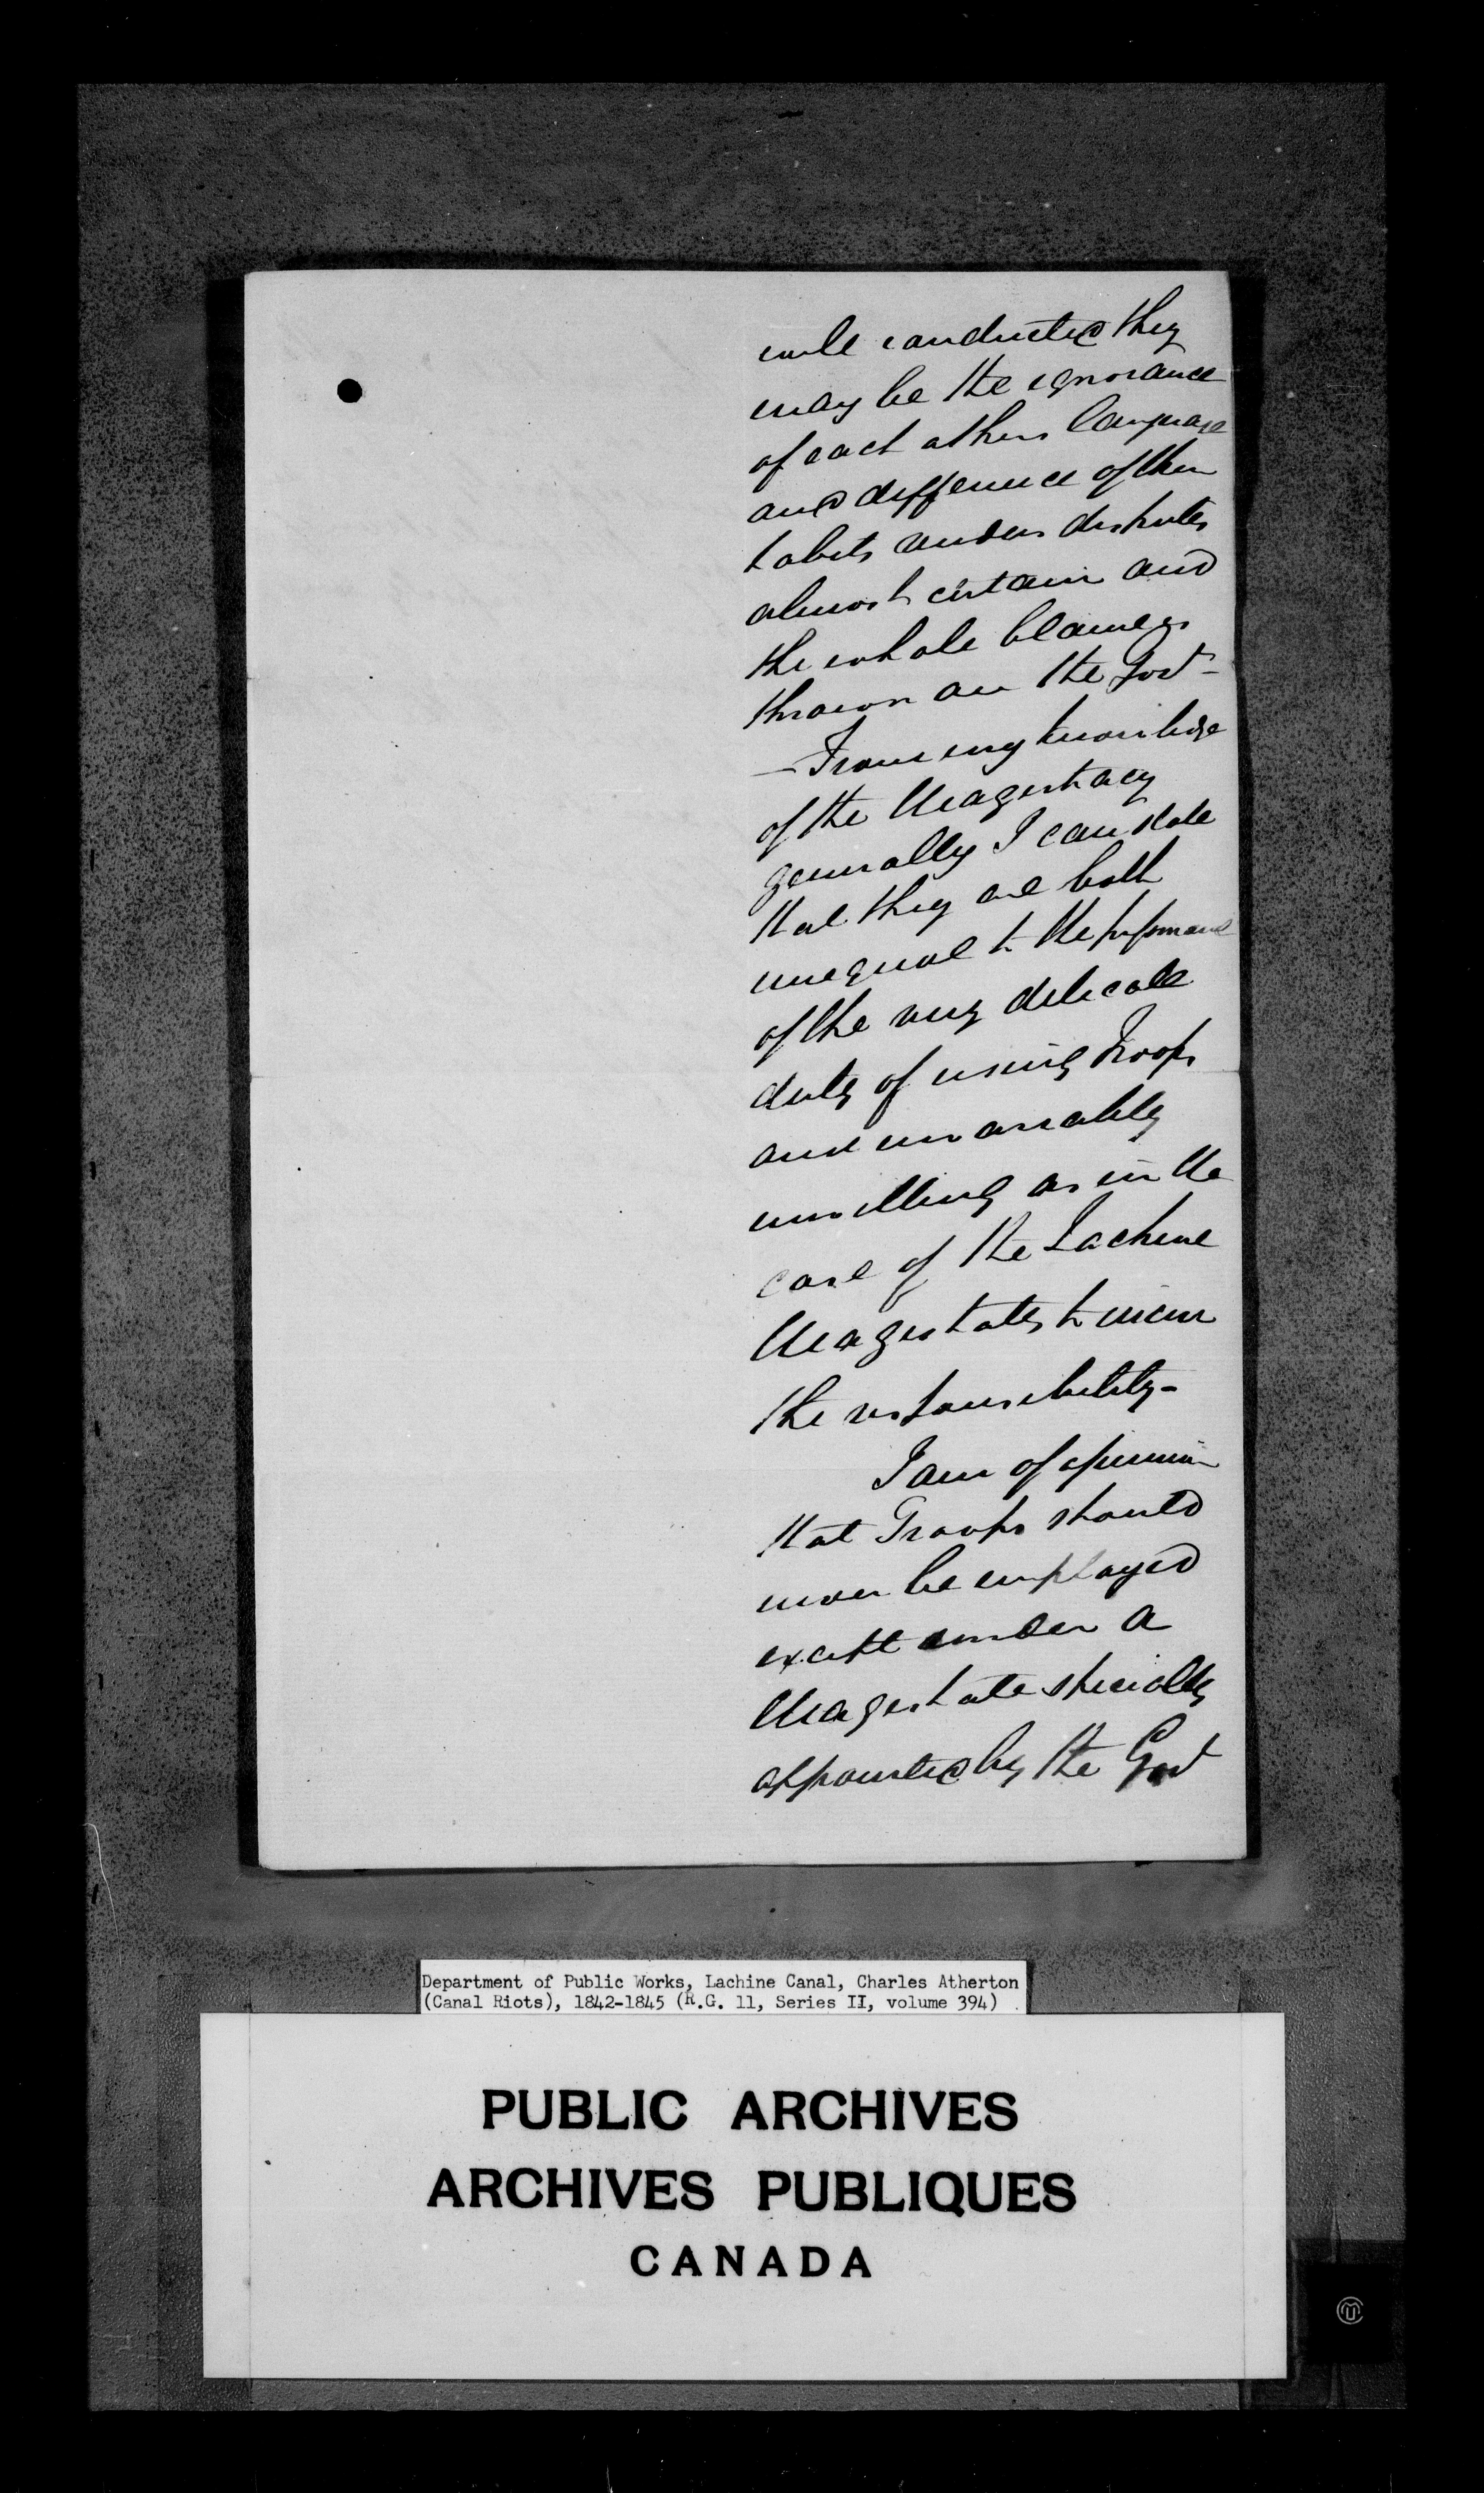 well conducted they
may be the ignorance
of each others language
and difference of their
habits renders disputes
almost certain and
the whole blame is
thrown on the Govt -
- From my knowledge
of the Magistracy
generally I can state
that they are both
unequal to the performance
of the very delicate
duty of using Troops
and invariably
unwilling as in the
case of the Lachine
Magistates to incur
the responsibility -
I am of opinion
that Troops should
never be employed
except under a
Magistrate specially
appointed by the Govt
Department of Public Works, Lachine Canal, Charles Atherton
(Canal Riots), 1842-1845 (R.G. 11, Series II, volume 394)
PUBLIC ARCHIVES
ARCHIVES PUBLIQUES
CANADA